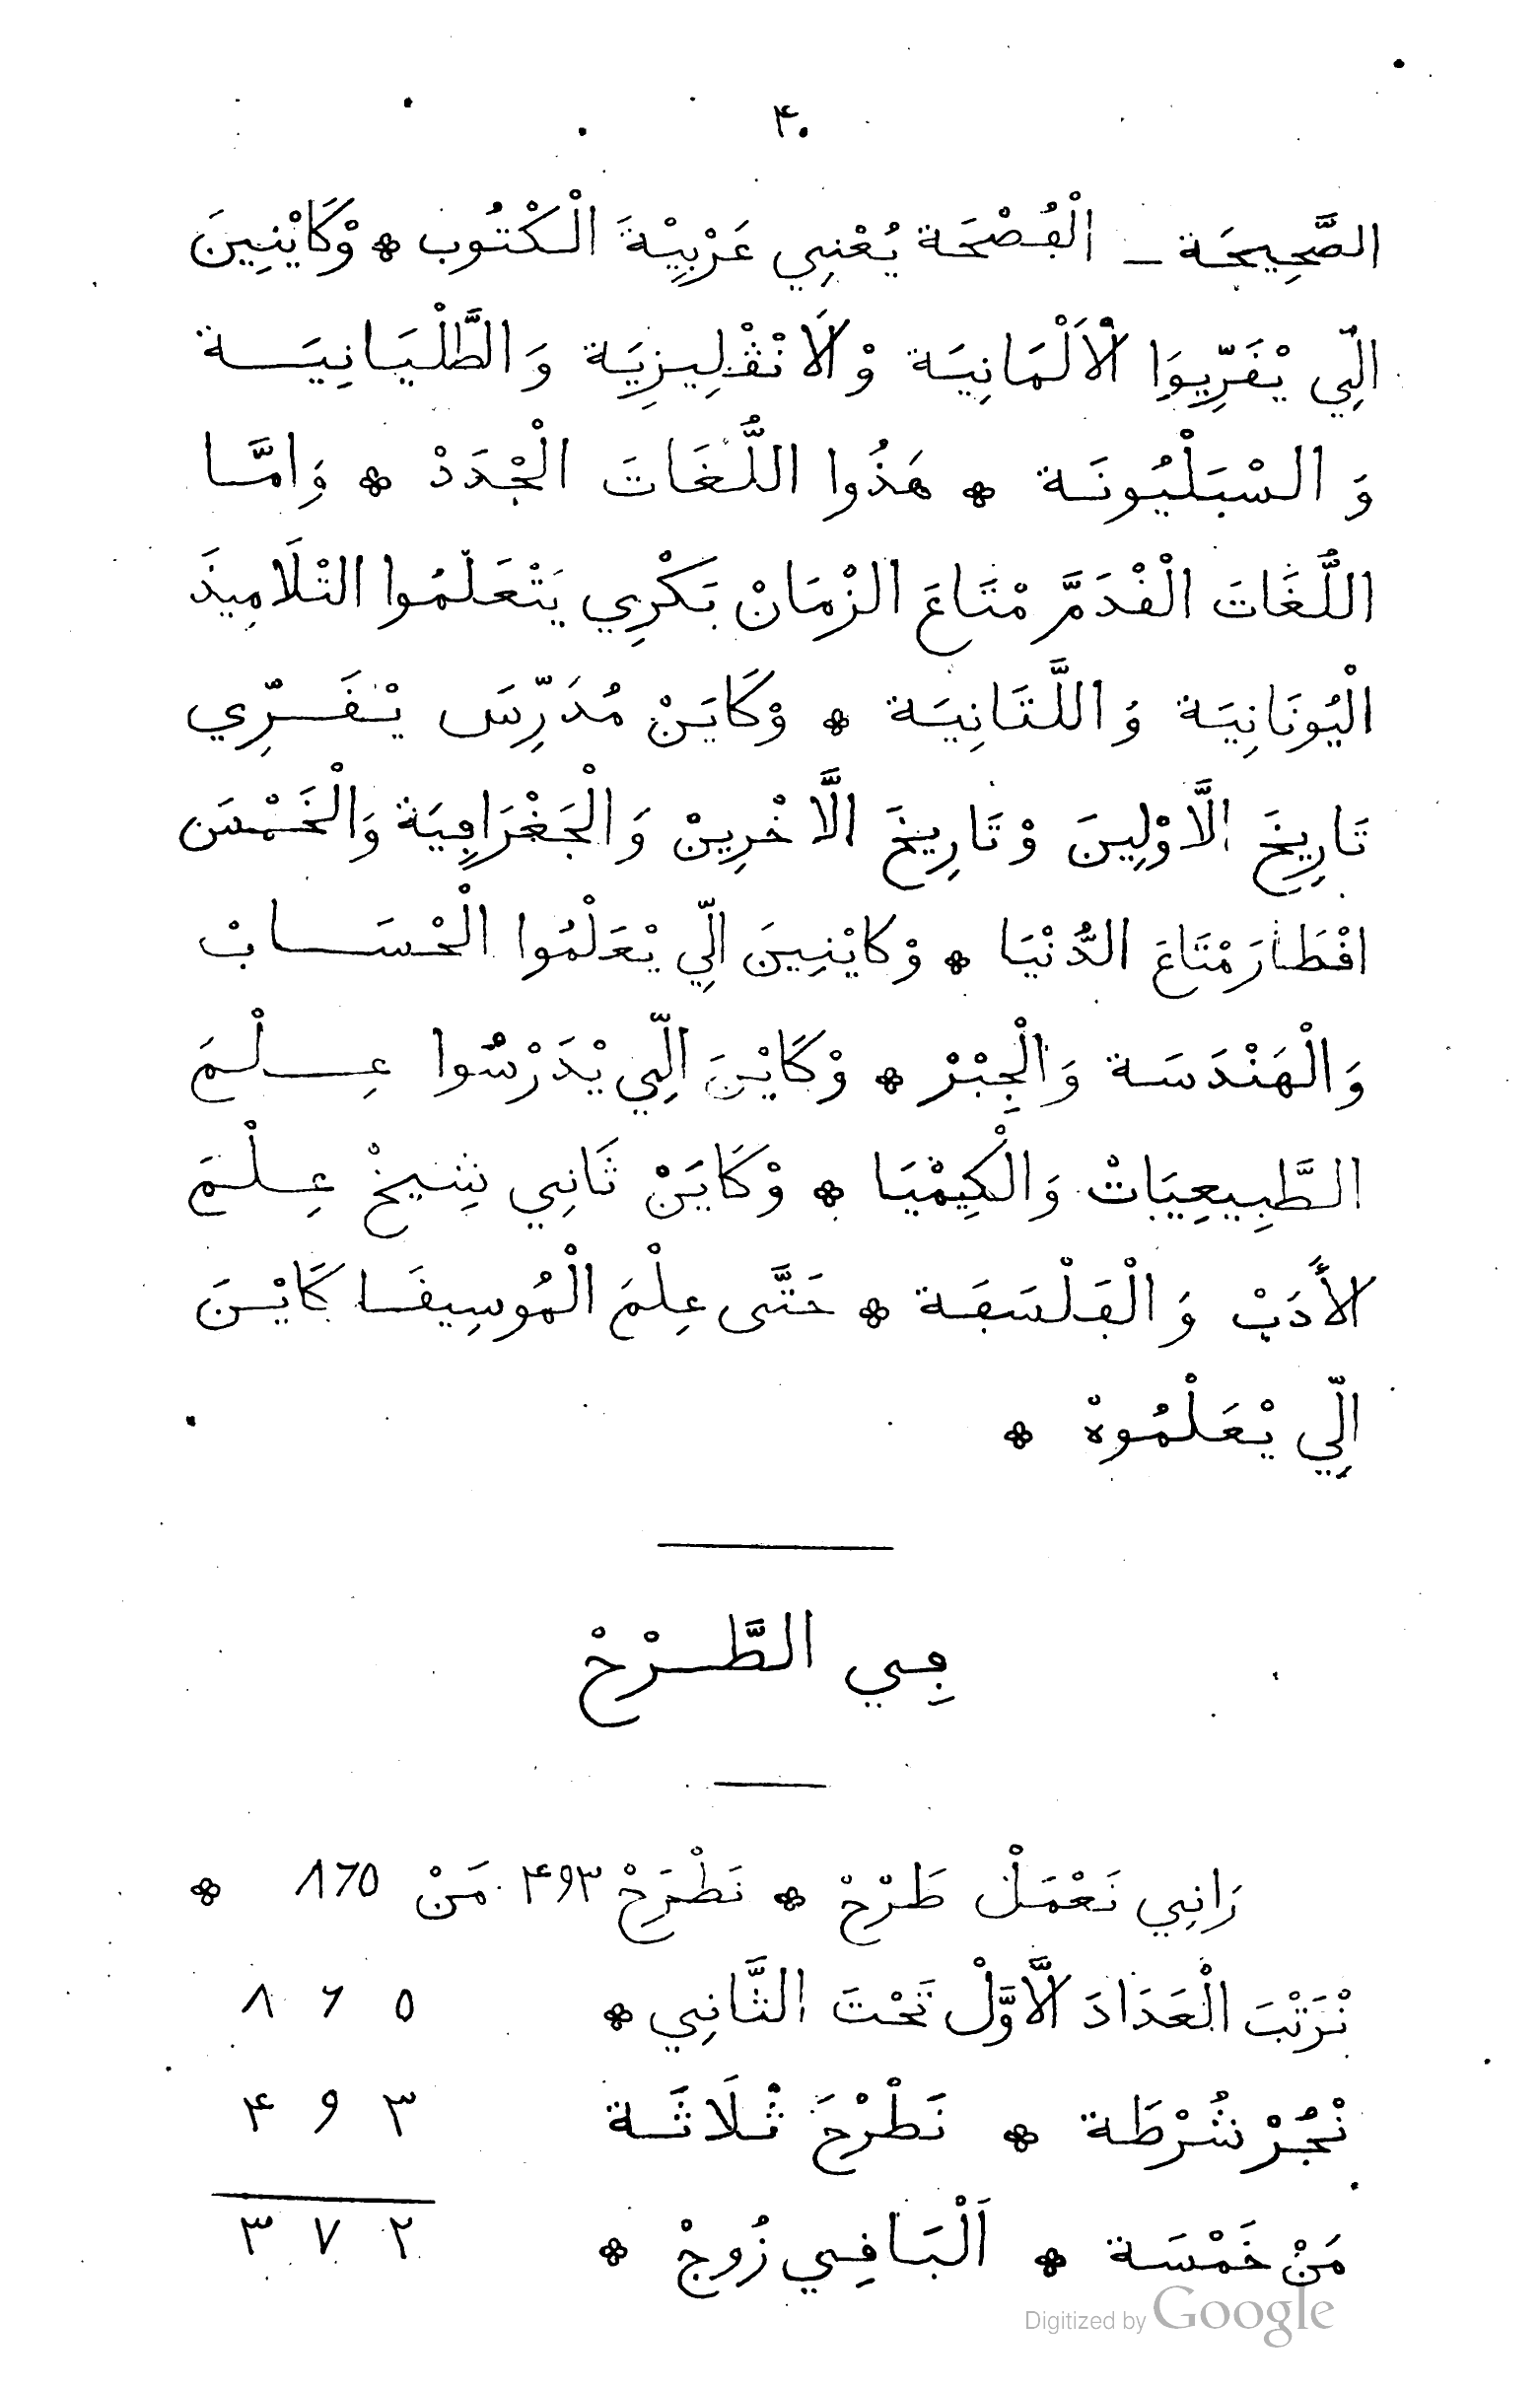 ۴۰
الصَّحِيحَة – الْڢُصْحَة يُعْنِي عَرْبِيْةَ الْكْتُوب ❊ وْكَايْنِينَ
الِّي يْفَرِّيِوَا الْاَلْمَانِيَة وْلَانْڤْلِيزِيَة وَالطَّلْيَانِيَة
وَ السْبَلْيُونَة ❊ هَذُوا اللُّغَاتَ الْجْدَدْ ❊ وَامَّا
اللُّغَاتَ الْفْدَمَّ مْتَاعَ الزْمَانْ بَكْرِي يَتْعَلّمُوا التْلَامِيذَ
الْيُونَانِيَة وَ اللَّتَانِيَة ❊ وْكَايَنْ مُدَرِّسَ يْفَرِّي
تَارِيخَ الَّاوْلِينَ وْتَارِيخَ الَّاخْرِينْ وَالْجَغْرَاڢِيَة وَالْخَمْسَ
افْطَارَ مْتَاعَ الدُّنْيَا ❊ وْكايْنِينَ الِّي يْعَلْمُوا الْحْسَابْ
وَالْهَنْدَسَة وَالْجِبْرْ ❊ وْكَايْنَ الِّي يْدَرْسُوا عِلْمَ
الطَّبِيعِيَاتْ وَالْكِيمْيَا ❊ وْكَايَنْ ثَانِي شِيخْ عِلْمَ
الأَدَبْ وَ الْڢَلْسَڢَة ❊ حَتَّى عِلْمَ الْمُوسِيفَا كَايْنَ
الِّي يْعَلْمُوهْ ❊
ڢِي الطَّرْحْ
رَانِي نَعْمَلْ طَرْحْ ❊ نَطْرَحْ ۴۹۳ مَنْ ٨٦٥ ❊
نْرَتْبَ الْعَدَادَ الَّاوَّلْ تَحْتَ الثَّانِي ❊ ٨ ٦ ٥
نْجُرْ شُرْطَة ❊ نَطْرْحَ ثْلَاثَة ۴ ۹ ۳
مَنْ خَمْسَة ❊ اَلْبَافِي زُوجْ ❊ ٣ ٧ ٢
Digitized by Google